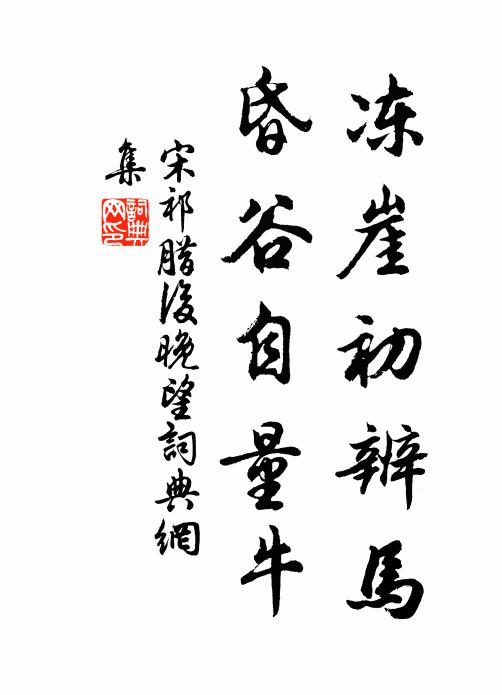 冻崖初辨馬
昏谷自量牛
宋祁腊後晚望詞典網
集
詞典
网印